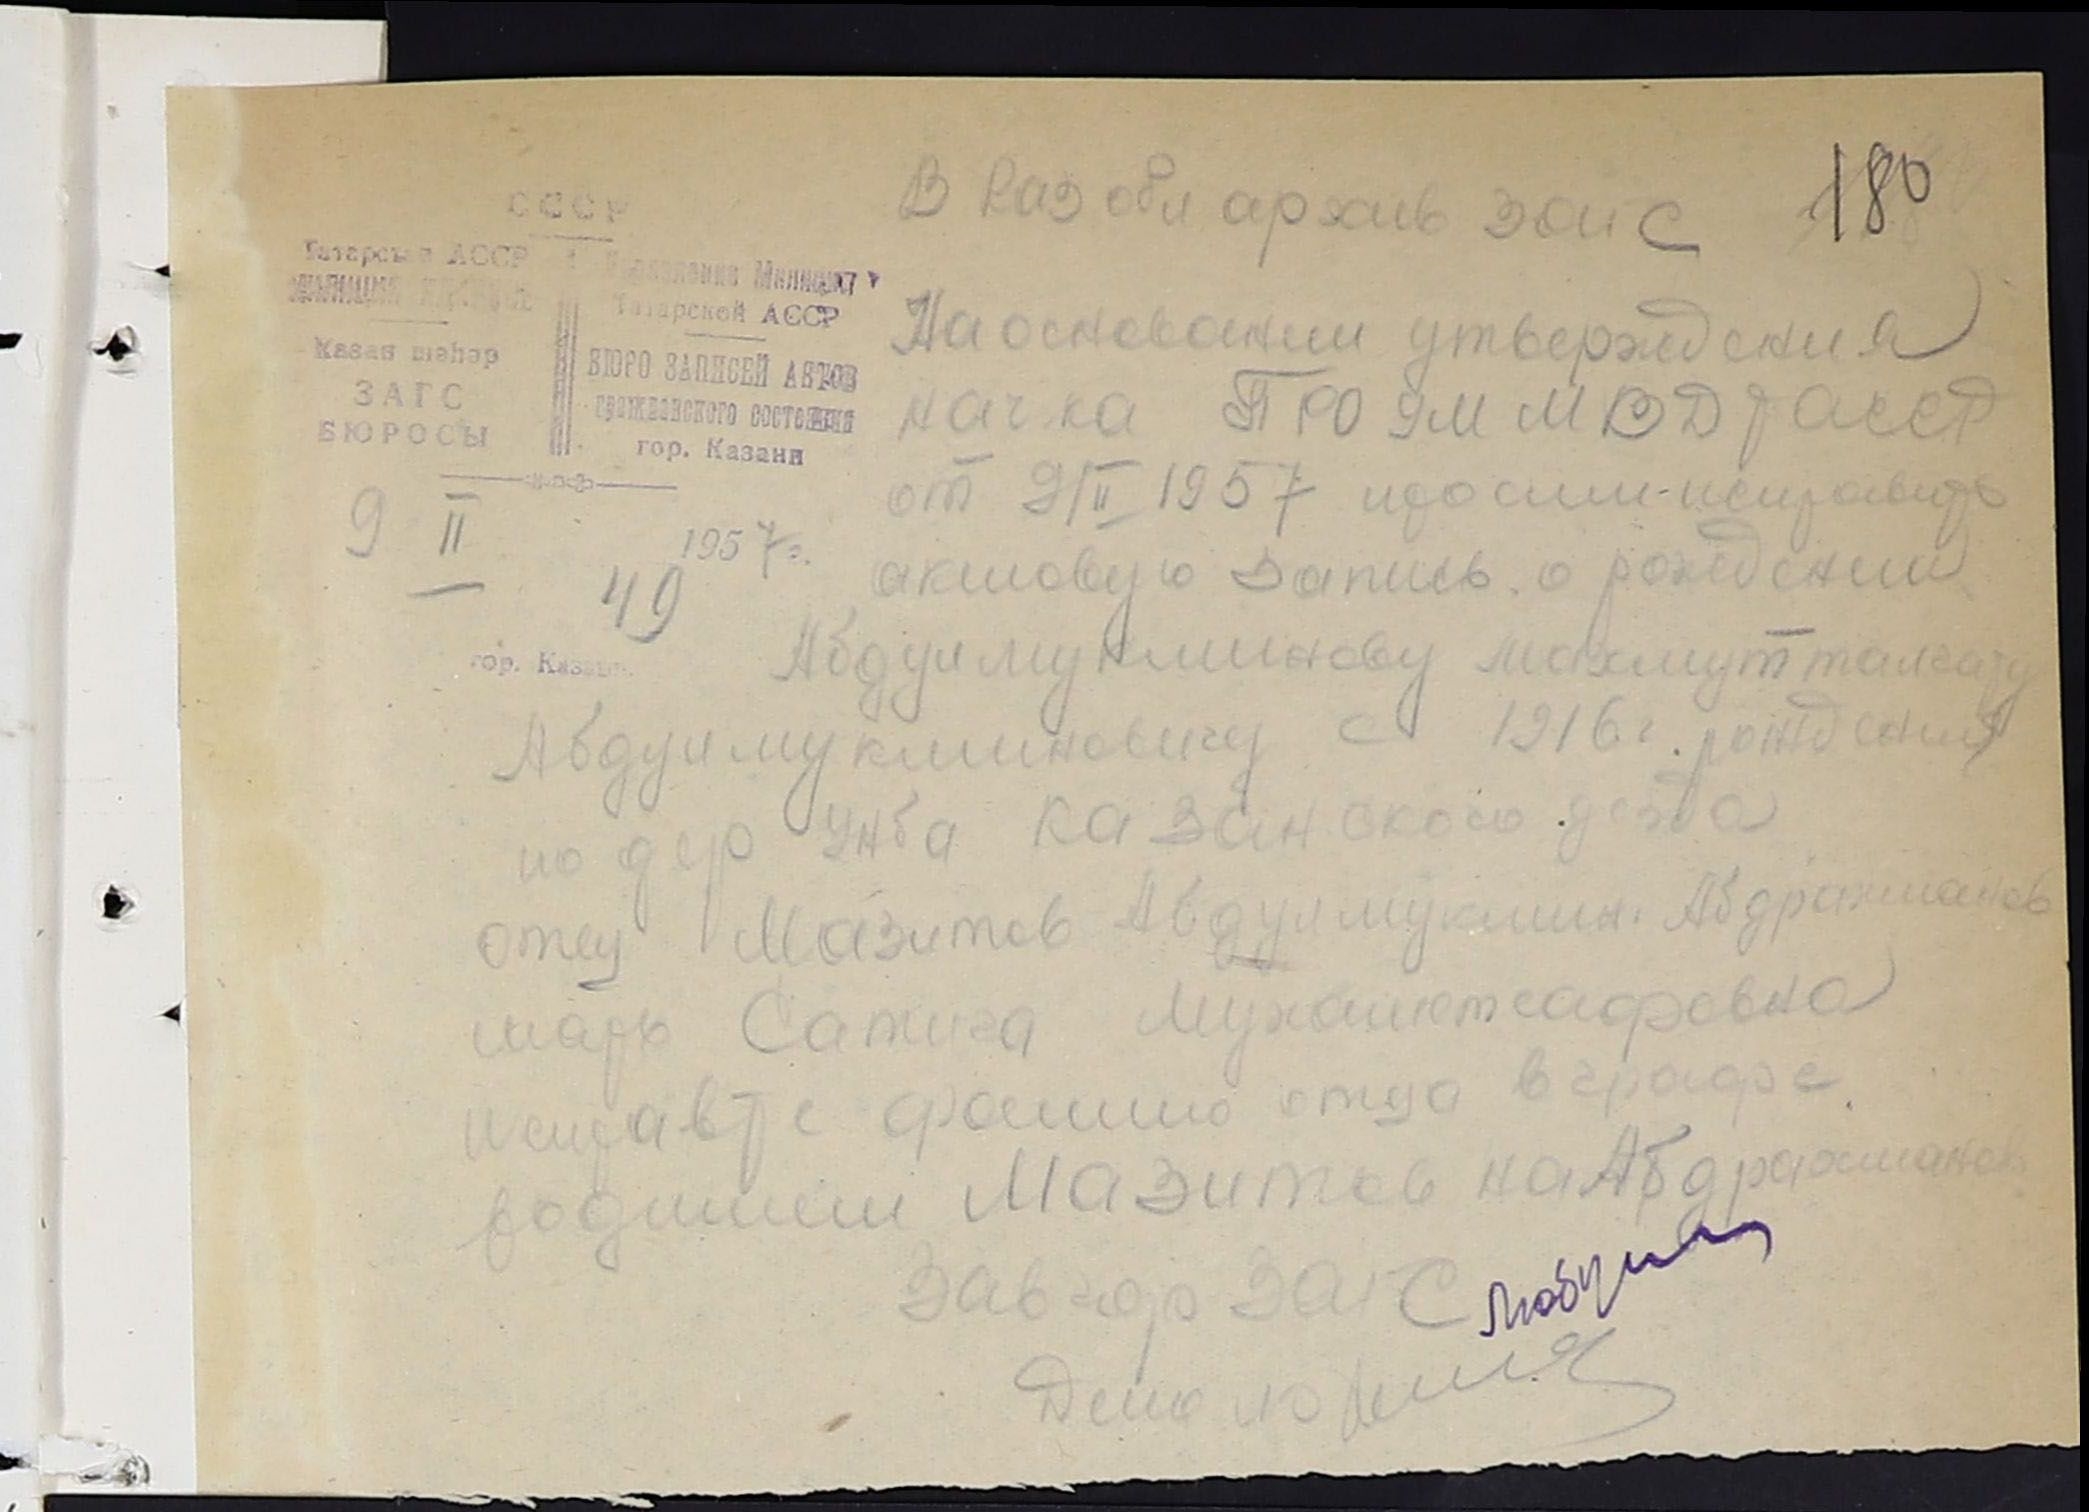 180
СССР
Татарская АССР
Управление Милиции
Татарской АССР
Казан шәһәр
ЗАГС
БЮРОСЫ
БЮРО ЗАПИСЕЙ АКТОВ
гражданского состояния
гор. Казани
9 II 1957г.
49
гор. Казань
В Каз обл архив ЗАГС
На основании утверждения
нач-ка ПРО УМ МВД ТАССР
от 9/II 1957 просим исправить
актовую запись о рождении
Абдулмуклминову Махмутталгату
Абдулмуклминовичу с 1916г. рождения
по дер Унба Казанского уезда
отец Мазитов Абдулмуклмин Абдрахманов
мать Сатига Мухаметсафовна
Исправте фамилию отца в графе
родители Мазитов на Абдрахманов
Зав гор ЗАГС
Дело